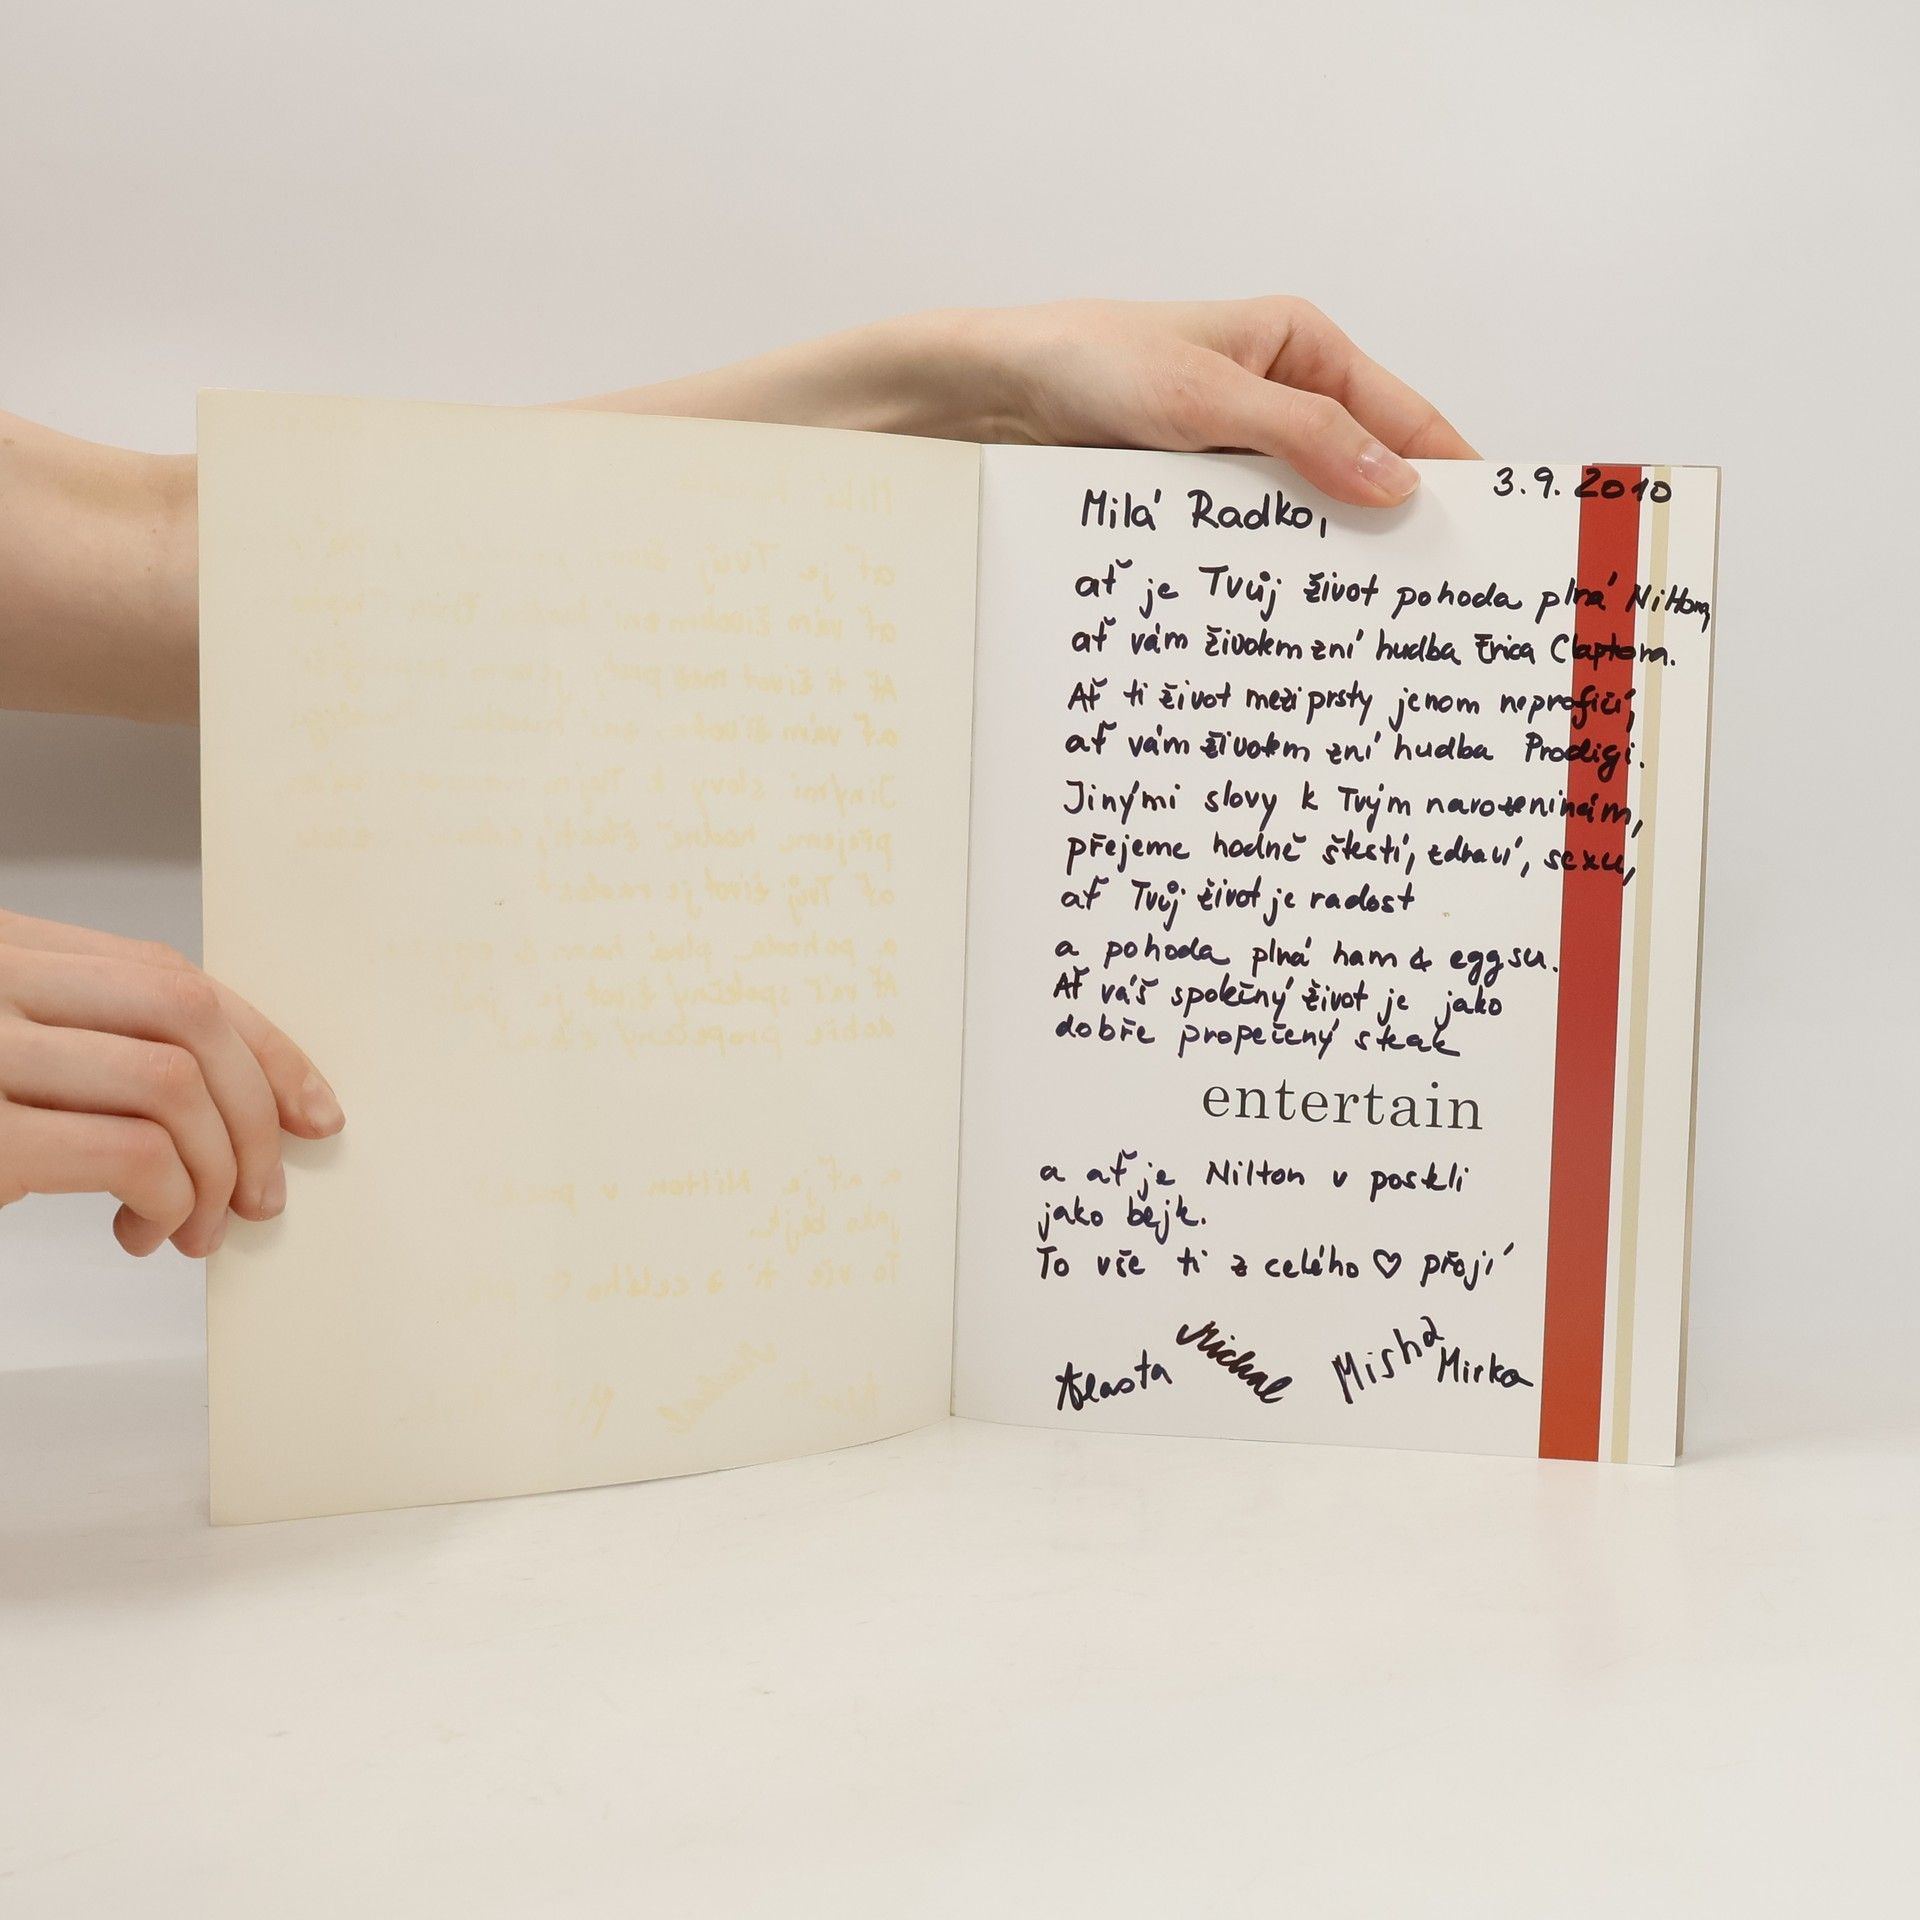 3.9. 2010
Milá Radko,
ať je Tvůj život pohoda plná Niltona,
ať vám životem zní hudba Erica Claptona.
Ať ti život mezi prsty jenom neprofičí,
ať vám životem zní hudba Prodigi.
Jinými slovy k Tvým narozeninám,
přejeme hodně štestí, zdraví, sexu,
ať Tvůj život je radost
a pohoda plná ham & eggsu.
Ať váš spolčný život je jako
dobře propečený steak
entertain
a ať je Nilton v postli
jako bejk.
To vše ti z celého ♡ přejí
Vlasta Michal Misha Mirka